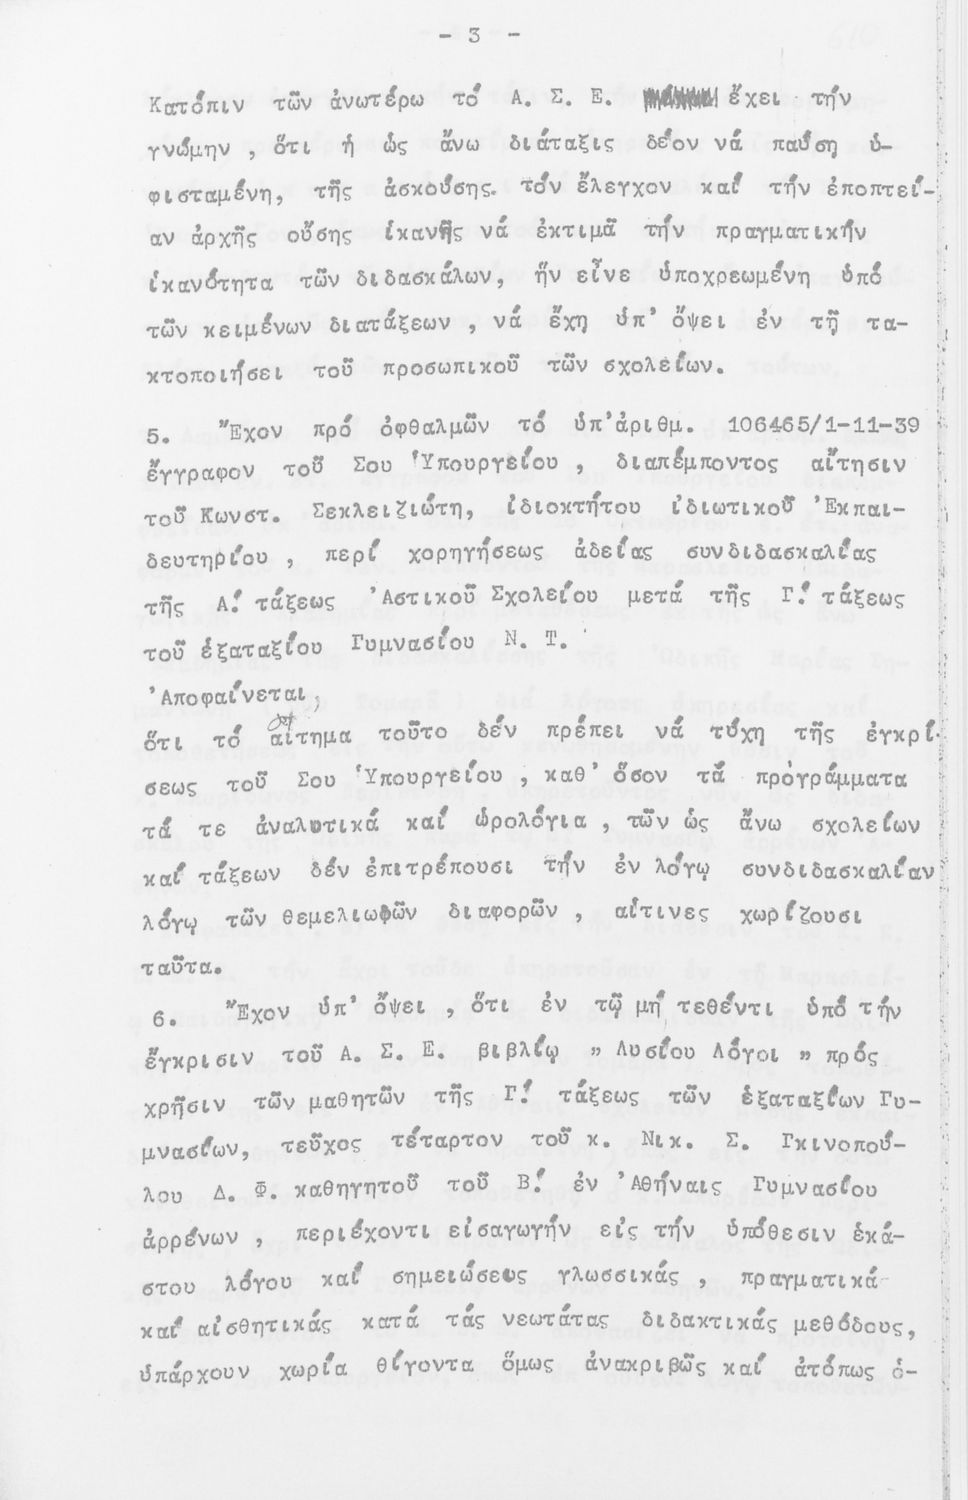 - 3 -
Κατόπιν τῶν ἀνωτέρω τό Α. Σ. Ε. ἔχει τήν
γνώμην , ὅτι ἡ ὡς ἄνω διάταξις δέον νά παύσῃ ὑ-
φισταμένη, τῆς ἀσκούσης τόν ἔλεγχον καί τήν ἐποπτεί-
αν ἀρχῆς οὔσης ἱκανῆς νά ἐκτιμᾶ τήν πραγματικήν
ἱκανότητα τῶν διδασκάλων, ἥν εἶνε ὑποχρεωμένη ὑπό
τῶν κειμένων διατάξεων , νά ἔχῃ ὑπ' ὄψει ἐν τῇ τα-
κτοποιήσει τοῦ προσωπικοῦ τῶν σχολείων.
5. Ἔχον πρό ὀφθαλμῶν τό ὑπ'ἀριθμ. 106465/1-11-39
ἔγγραφον τοῦ Σου Ὑπουργείου , διαπέμποντος αἴτησιν
τοῦ Κωνστ. Σεκλειζιώτη, ἰδιοκτήτου ἰδιωτικοῦ Ἐκπαι-
δευτηρίου , περί χορηγήσεως ἀδείας συνδιδασκαλίας
τῆς Α! τάξεως Ἀστικοῦ Σχολείου μετά τῆς Γ! τάξεως
τοῦ ἑξαταξίου Γυμνασίου Ν. Τ.
Ἀποφαίνεται,
ὅτι τό αἴτημα τοῦτο δέν πρέπει νά τύχῃ τῆς ἐγκρί-
σεως τοῦ Σου Ὑπουργείου , καθ' ὅσον τά προγράμματα
τά τε ἀναλυτικά καί ὡρολόγια , τῶν ὡς ἄνω σχολείων
καί τάξεων δέν ἐπιτρέπουσι τήν ἐν λόγῳ συνδιδασκαλίαν
λόγῳ τῶν θεμελιωδῶν διαφορῶν , αἵτινες χωρίζουσι
ταῦτα.
6. Ἔχον ὑπ' ὄψει , ὅτι ἐν τῷ μή τεθέντι ὑπό τήν
ἔγκρισιν τοῦ Α. Σ. Ε. βιβλίῳ " Λυσίου Λόγοι " πρός
χρῆσιν τῶν μαθητῶν τῆς Γ! τάξεως τῶν ἑξαταξίων Γυ-
μνασίων, τεῦχος τέταρτον τοῦ κ. Νικ. Σ. Γκινοπού-
λου Δ. Φ. καθηγητοῦ τοῦ Β! ἐν Ἀθήναις Γυμνασίου
ἀρρένων , περιέχοντι εἰσαγωγήν εἰς τήν ὑπόθεσιν ἑκά-
στου λόγου καί σημειώσεις γλωσσικάς , πραγματικά
καί αἰσθητικάς κατά τάς νεωτάτας διδακτικάς μεθόδους,
ὑπάρχουν χωρία θίγοντα ὅμως ἀνακριβῶς καί ἀτόπως ὁ-